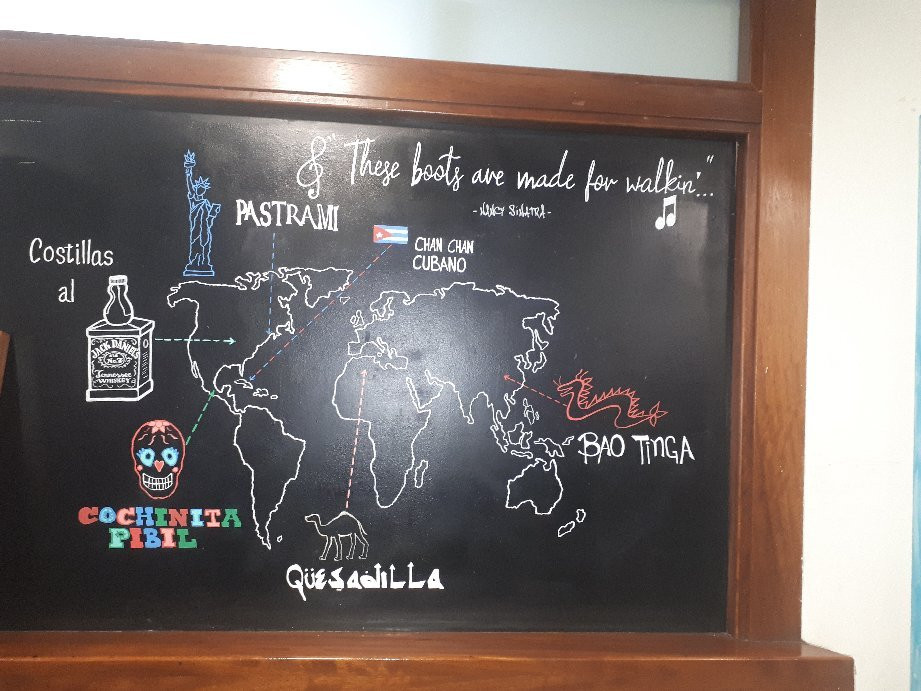 "These boots are made for walkin'..."
- NANCY SINATRA -
PASTRAMI
CHAN CHAN
CUBANO
Costillas
al
JACK DANIEL'S
Tennessee
WHISKEY
BAO TINGA
COCHINITA
PIBIL
QÜESADILLA